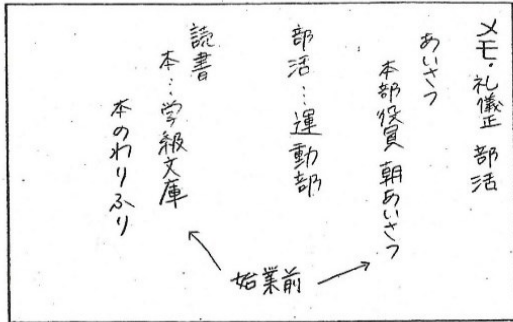 メモ・礼儀正 部活
あいさつ
本部役員 朝あいさつ
部活…運動部
読書
本…学級文庫
本のわりふり
始業前